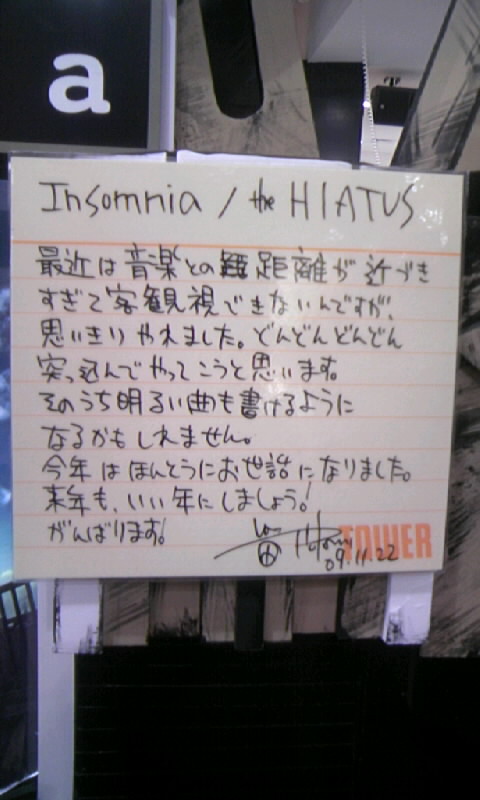 a
Insomnia / the HIATUS
最近は音楽との距離が近づき
すぎて客観視できないんですが、
思いきりやれました。どんどんどんどん
突っ込んでやってこうと思います。
そのうち明るい曲も書けるように
なるかもしれません。
今年はほんとうにお世話になりました。
来年も、いい年にしましょう!
がんばります!
TOWER
09.11.22